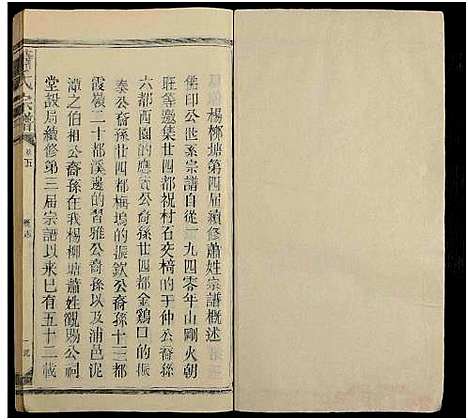 楊柳塘第四屆續修蕭姓宗譜概述
儒印公系宗譜自從一九四零年山剛火朝
旺等邀集廿四都祝村石夾椅的于仲公裔孫
六都西園的應賓公裔孫廿四都金鷄口的振
泰公裔孫廿四都梅塢的振欽公裔孫十三都
霞嶺二十都溪邊的習雅公裔孫以及浦邑泥
潭之伯相公裔孫在我楊柳塘蕭姓觀賜公祠
堂設局續修第三屆宗譜以來已有五十二載
蕭氏宗譜
卷五